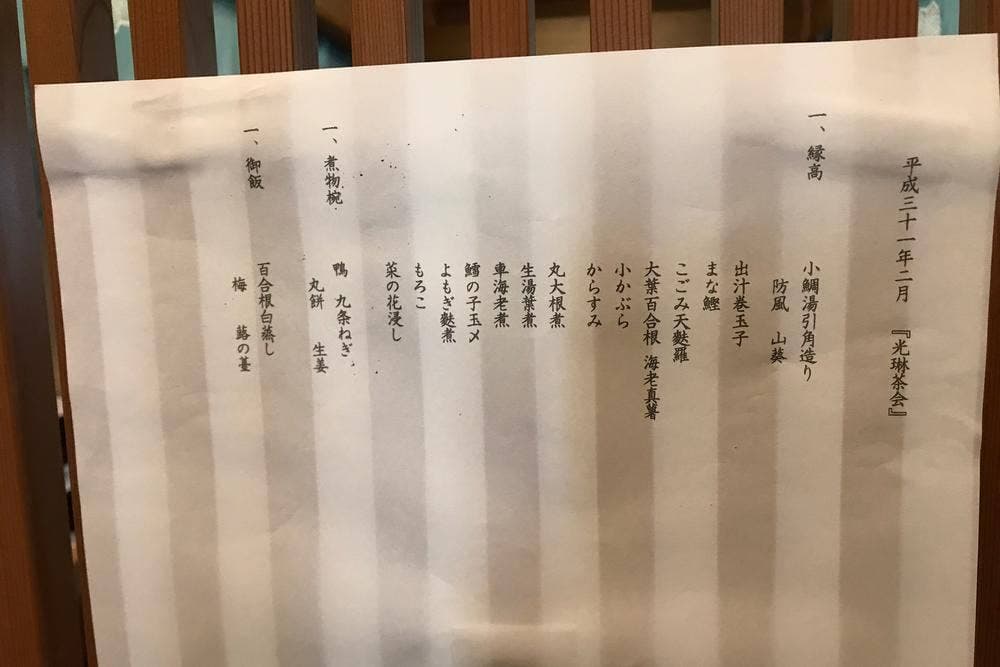 平成三十一年二月 『光琳茶会』
一、縁高
小鯛湯引角造り
防風 山葵
出汁巻玉子
まな鰹
こごみ天麩羅
大葉百合根 海老真薯
小かぶら
からすみ
丸大根煮
生湯葉煮
車海老煮
鱈の子玉〆
よもぎ麩煮
もろこ
菜の花浸し
一、煮物椀
鴨 九条ねぎ
丸餅 生姜
一、御飯
百合根白蒸し
梅 蕗の薹